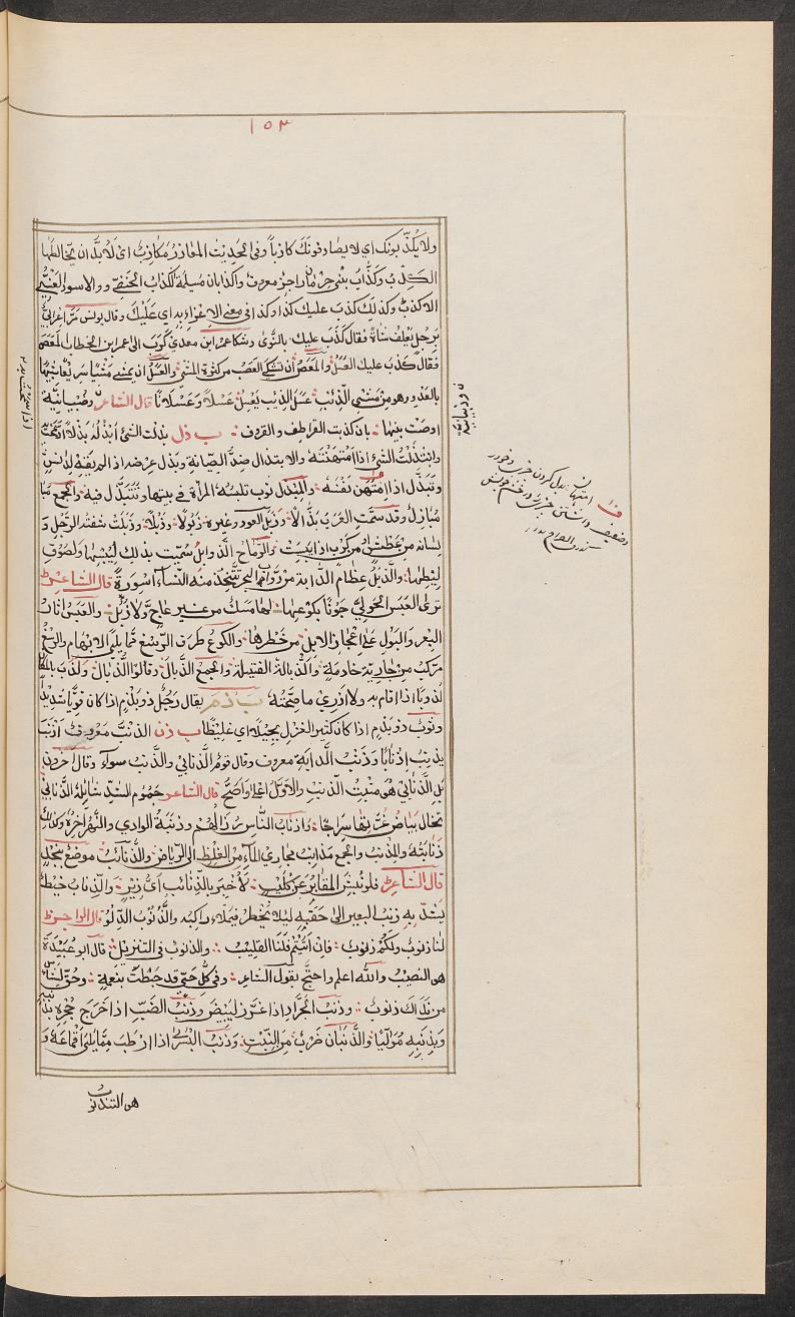 ١٥٣
ولا يكذّبونك اي لا يصادفونك كاذباً وفي الحديث المعاذر مكاذب اي لا بدّ ان يخالطها
الكذب وكذّاب بني حرماز راجز معروف والكذابان مسيلمة الكذاب الحنفي والاسود العنسي
الاكذب وكذلك كذب عليك كذا وكذا في معنى الاغراء به اي عليك وقال يونس مرّ اعرابيّ
برجل يعلف شاة فقال كذب عليك بالنوى وشكا عمرو ابن معدي كرب الى عمر ابن الخطاب المعص
فقال كذب عليك العسل والمعص ان يشتكي العصب من كثرة المشي والعسل ان يمشي مشيا سريعا شبيها
بالعدو وهو من مشي الذئب عسل الذيب يعسل عسلا وعسلانا قال الشاعر وذبيانيّة
اوصت بنيها بان كذبت القراطف والقروف ب ذل بذلت الشئ ابذله بذلا
وابتذلت الشئ اذا امتهنته والابتذال ضدّ الصيانة وبذل عرضه اذا لم يقنه لدنس
وتبذّل اذا امتهن نفسه والمبذل ثوب تلبسه المرأة في بيتها وتتبذّل فيه والجمع
مباذل وقد سمّت العرب بذّالا وذبل العود وغيره ذبولا وذبلا وذبلت شفتا الرجل و
لسانه من عطش او كرب اذا يبست والرماح الذوابل سمّيت بذلك ليبسها ولصوق
ليطها والذبل عظام الدابة من دواب البحر تتّخذ منه النساء اسورة قال الشاعر
ترى العبس الحوليّ جونا بكوعها لها مسك من غير عاج ولا ذبل والعبس اثار
البعر والبول على اعجاز الابل من خطرها والكوع طرف الرّسغ مما يلي الابهام والرسغ
مركب من جارية خادملة والذّبالة الفتيلة والجمع الذّبال وقالوا الذّبال ولذب بالمكان
لذوبا اذا اقام به ولا ادري ما صحّته ب ذ م يقال رجل ذو بذم اذا كان قويّا شديداً
وثوب ذو بذم اذا كان كثير الغزل يجيله اي غليظا ب ذن الذنب معروف اذنب
يذنب اذنابا وذنب الدابة معروف وقال قوم الذنابي والذنب سواء وقال اخرون
بل الذّنابي هو منبت الذنب والاوّل اعلى واصحّ قال الشاعر جموم الشدّ شائلة الذنابي
تخال بياض غرّتها سراجا واذناب الناس رذالهم وذنبة الوادي والنهر اخره وكذلك
ذنابته والمذنب والجمع مذانب مجاري الماء من الغلظ الى الرياض والذنائب موضع بنجد
قال الشاعر فلو نبش المقابر عن كليب لاخبر بالذنائب ايّ زير والذناب خيط
يشدّ به ذنب البعير الى حقبه ليلا يخطر فيملا راكبه والذنوب الدلو قال الراجز
لنا ذنوب ولكم ذنوب فان ابيتم فلنا القليب والذنوب في التنزيل قال ابو عبيدة
هو النصيب والله اعلم واحتجّ بقول الشاعر وفي كلّ حيّ قد خبطت بنعمة وحقّ لشاس
من نداك ذنوب وذنب الجراد اذا غرّز ليبيض وذنب الضبّ اذا خرج من جحره بذنبه
وبذنبه مولّيا والذنبان ضرب من النبت وذنب البسر اذا ارطب مما يلي اقماعه و
هو التذنوب
ن وذبيانية